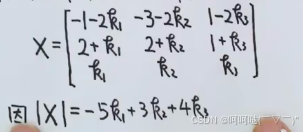 X = [ -1-2k₁ -3-2k₂ 1-2k₃
2+k₁ 2+k₂ 1+k₃
k₁ k₂ k₃ ]
因 |X| = -5k₁+3k₂+4k₃